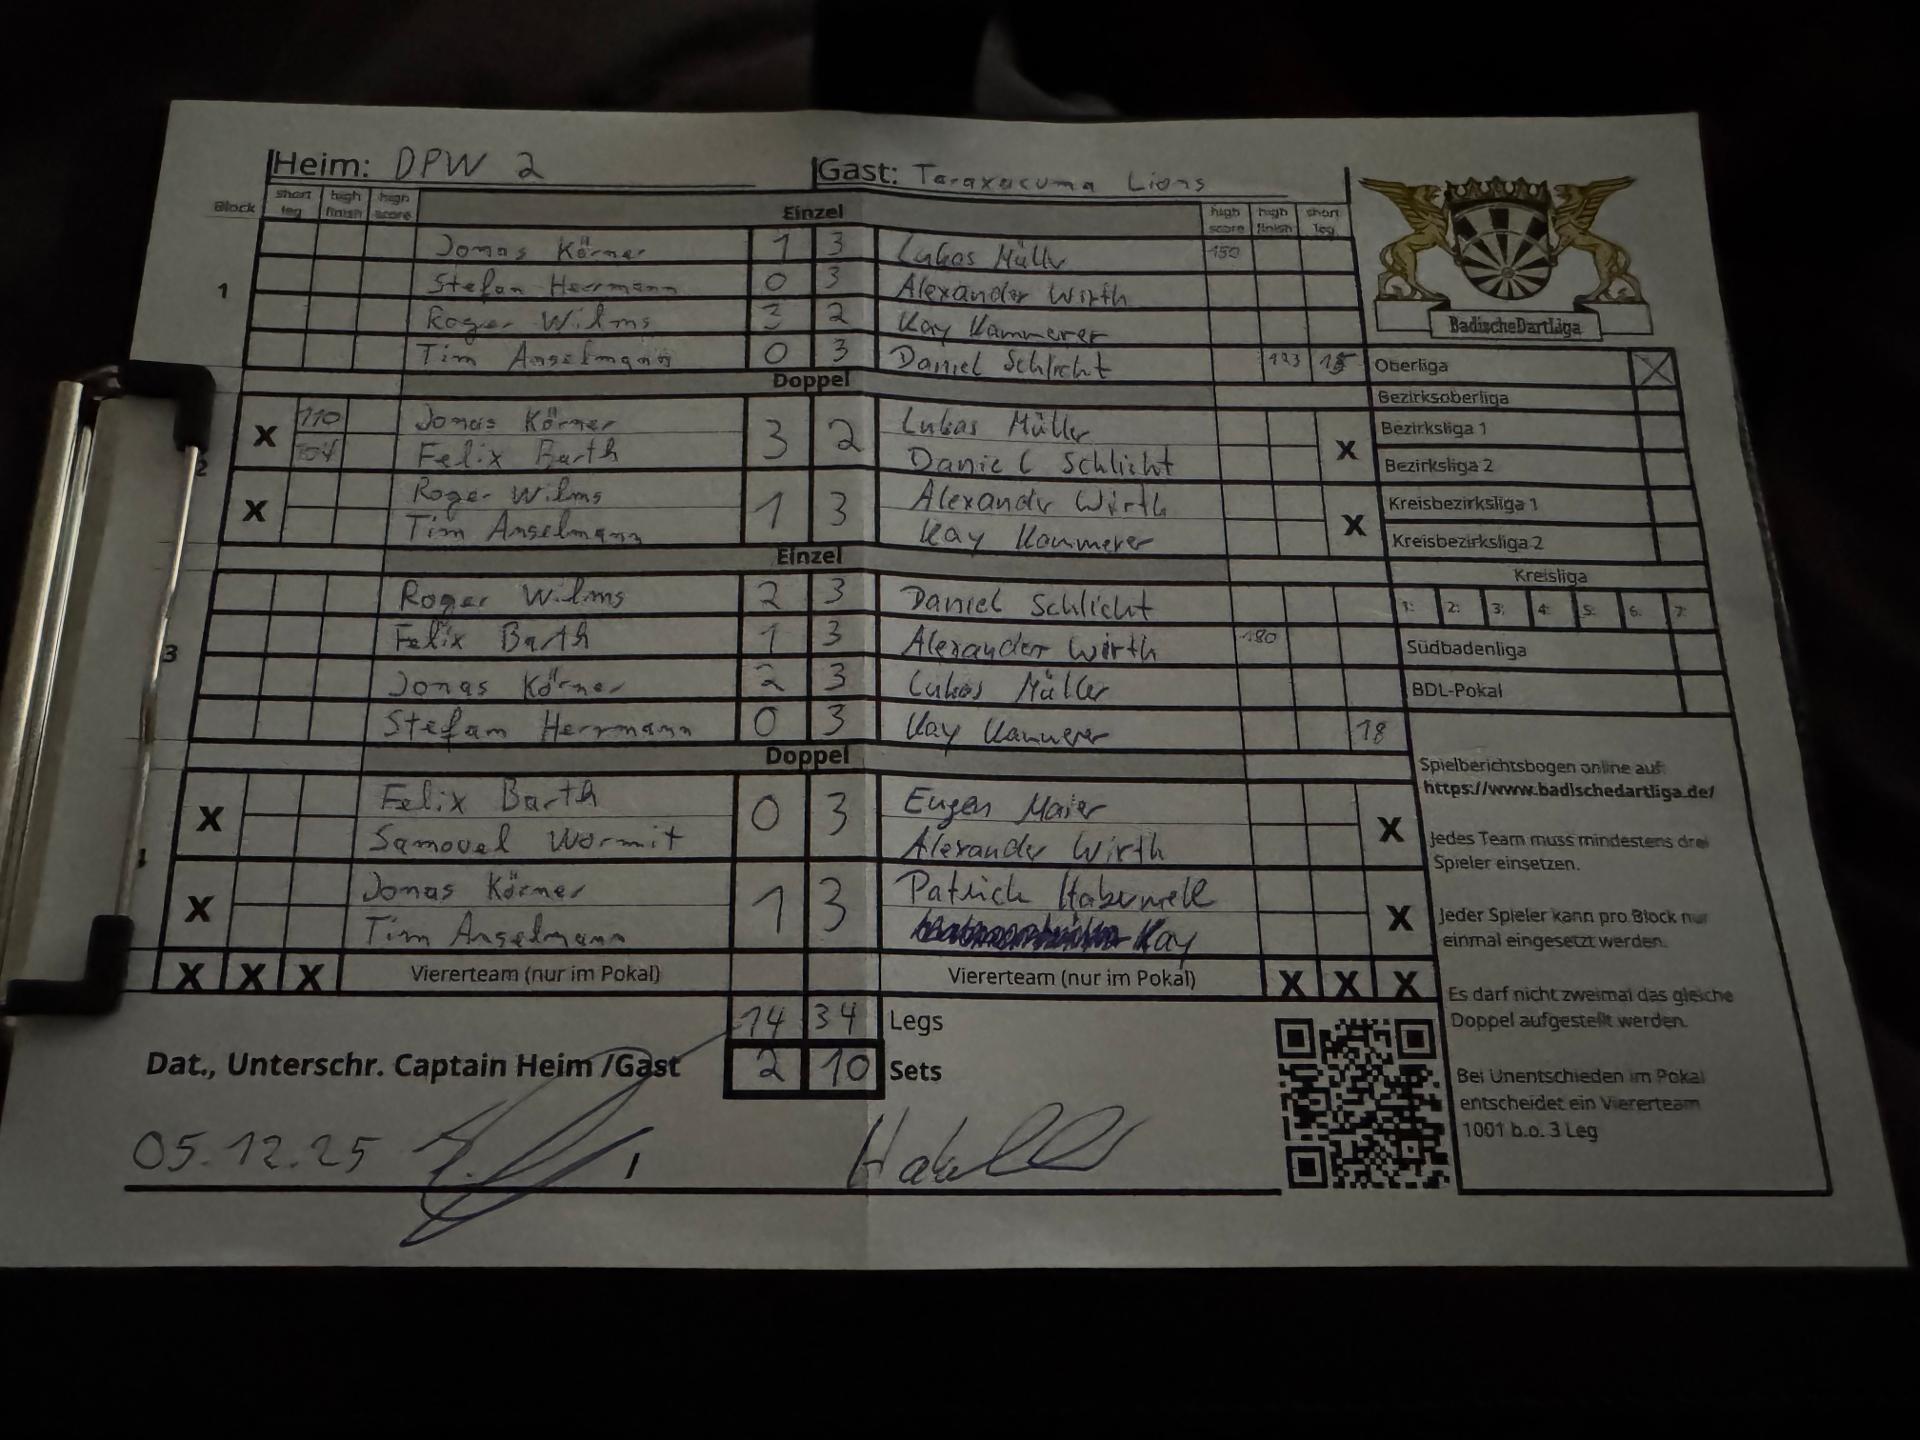 Heim: DPW 2 Gast: Taraxacuma Lions
Block short leg high finish high score Einzel high score high finish short leg
Jonas Körner 1 3 Lukas Müller 150
1 Stefan Herrmann 0 3 Alexander Wirth
Roger Wilms 3 2 Kay Kammerer
Tim Anselmann 0 3 Daniel Schlicht 123
Doppel
X 110 Jonas Körner 3 2 Lukas Müller X
2 104 Felix Barth Daniel Schlicht
X Roger Wilms 1 3 Alexander Wirth X
Tim Anselmann Kay Kammerer
Einzel
Roger Wilms 2 3 Daniel Schlicht
3 Felix Barth 1 3 Alexander Wirth 180
Jonas Körner 2 3 Lukas Müller
Stefan Herrmann 0 3 Kay Kammerer 18
Doppel
X Felix Barth 0 3 Eugen Maier X
Samouel Wormit Alexander Wirth
X Jonas Körner 1 3 Patrick Haberwell X
Tim Anselmann Kay
X X X Viererteam (nur im Pokal) Viererteam (nur im Pokal) X X X
14 34 Legs
Dat., Unterschr. Captain Heim /Gast 2 10 Sets
05.12.25
BadischeDartLiga
Oberliga X
Bezirksoberliga
Bezirksliga 1
Bezirksliga 2
Kreisbezirksliga 1
Kreisbezirksliga 2
Kreisliga
1: 2: 3: 4: 5: 6: 7:
Südbadenliga
BDL-Pokal
Spielberichtsbogen online auf:
https://www.badischedartliga.de/
Jedes Team muss mindestens drei
Spieler einsetzen.
Jeder Spieler kann pro Block nur
einmal eingesetzt werden.
Es darf nicht zweimal das gleiche
Doppel aufgestellt werden.
Bei Unentschieden im Pokal
entscheidet ein Viererteam
1001 b.o. 3 Leg